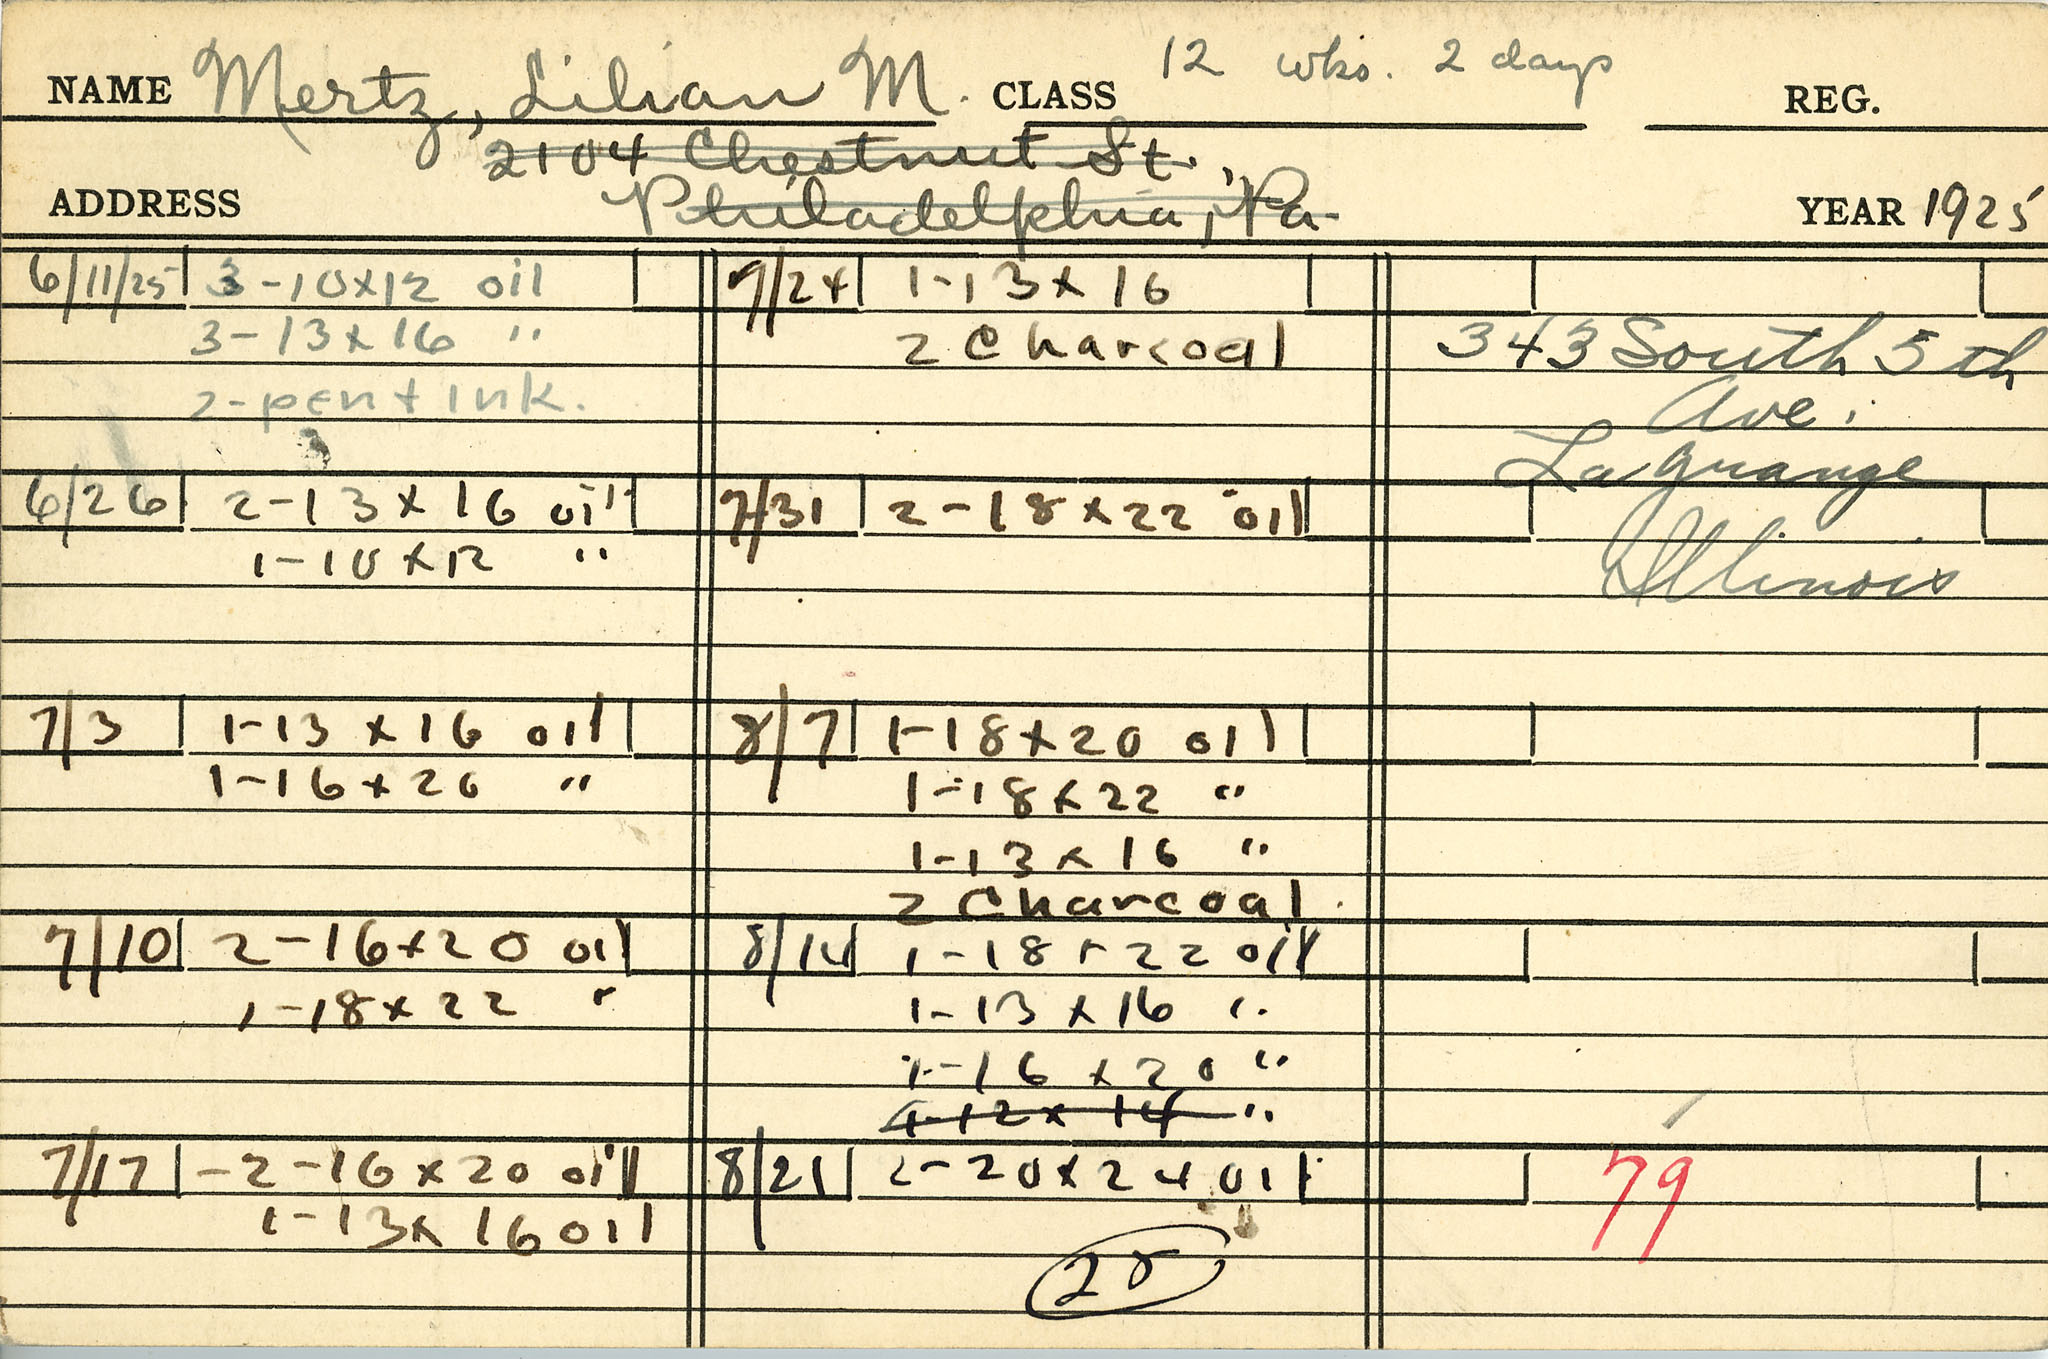 NAME Mertz, Lilian M. CLASS 12 wks. 2 days REG.
2104 Chestnut St.,
ADDRESS Philadelphia, Pa- YEAR 1925
6/11/25 3-10x12 oil
3-13x16 "
2-pen + Ink.
6/26 2-13x16 oil
1-10x12 "
7/3 1-13x16 oil
1-16x20 "
7/10 2-16x20 oil
1-18x22 "
7/17 -2-16x20 oil
1-13x16 oil
7/24 1-13x16
2 Charcoal
7/31 2-18x22 oil
8/7 1-18x20 oil
1-18x22 "
1-13x16 "
2 Charcoal
8/14 1-18x22 oil
1-13x16 "
1-16x20 "
1-12x14 "
8/21 2-20x24 oil
28
343 South 5th
Ave.
La Grange
Illinois
79